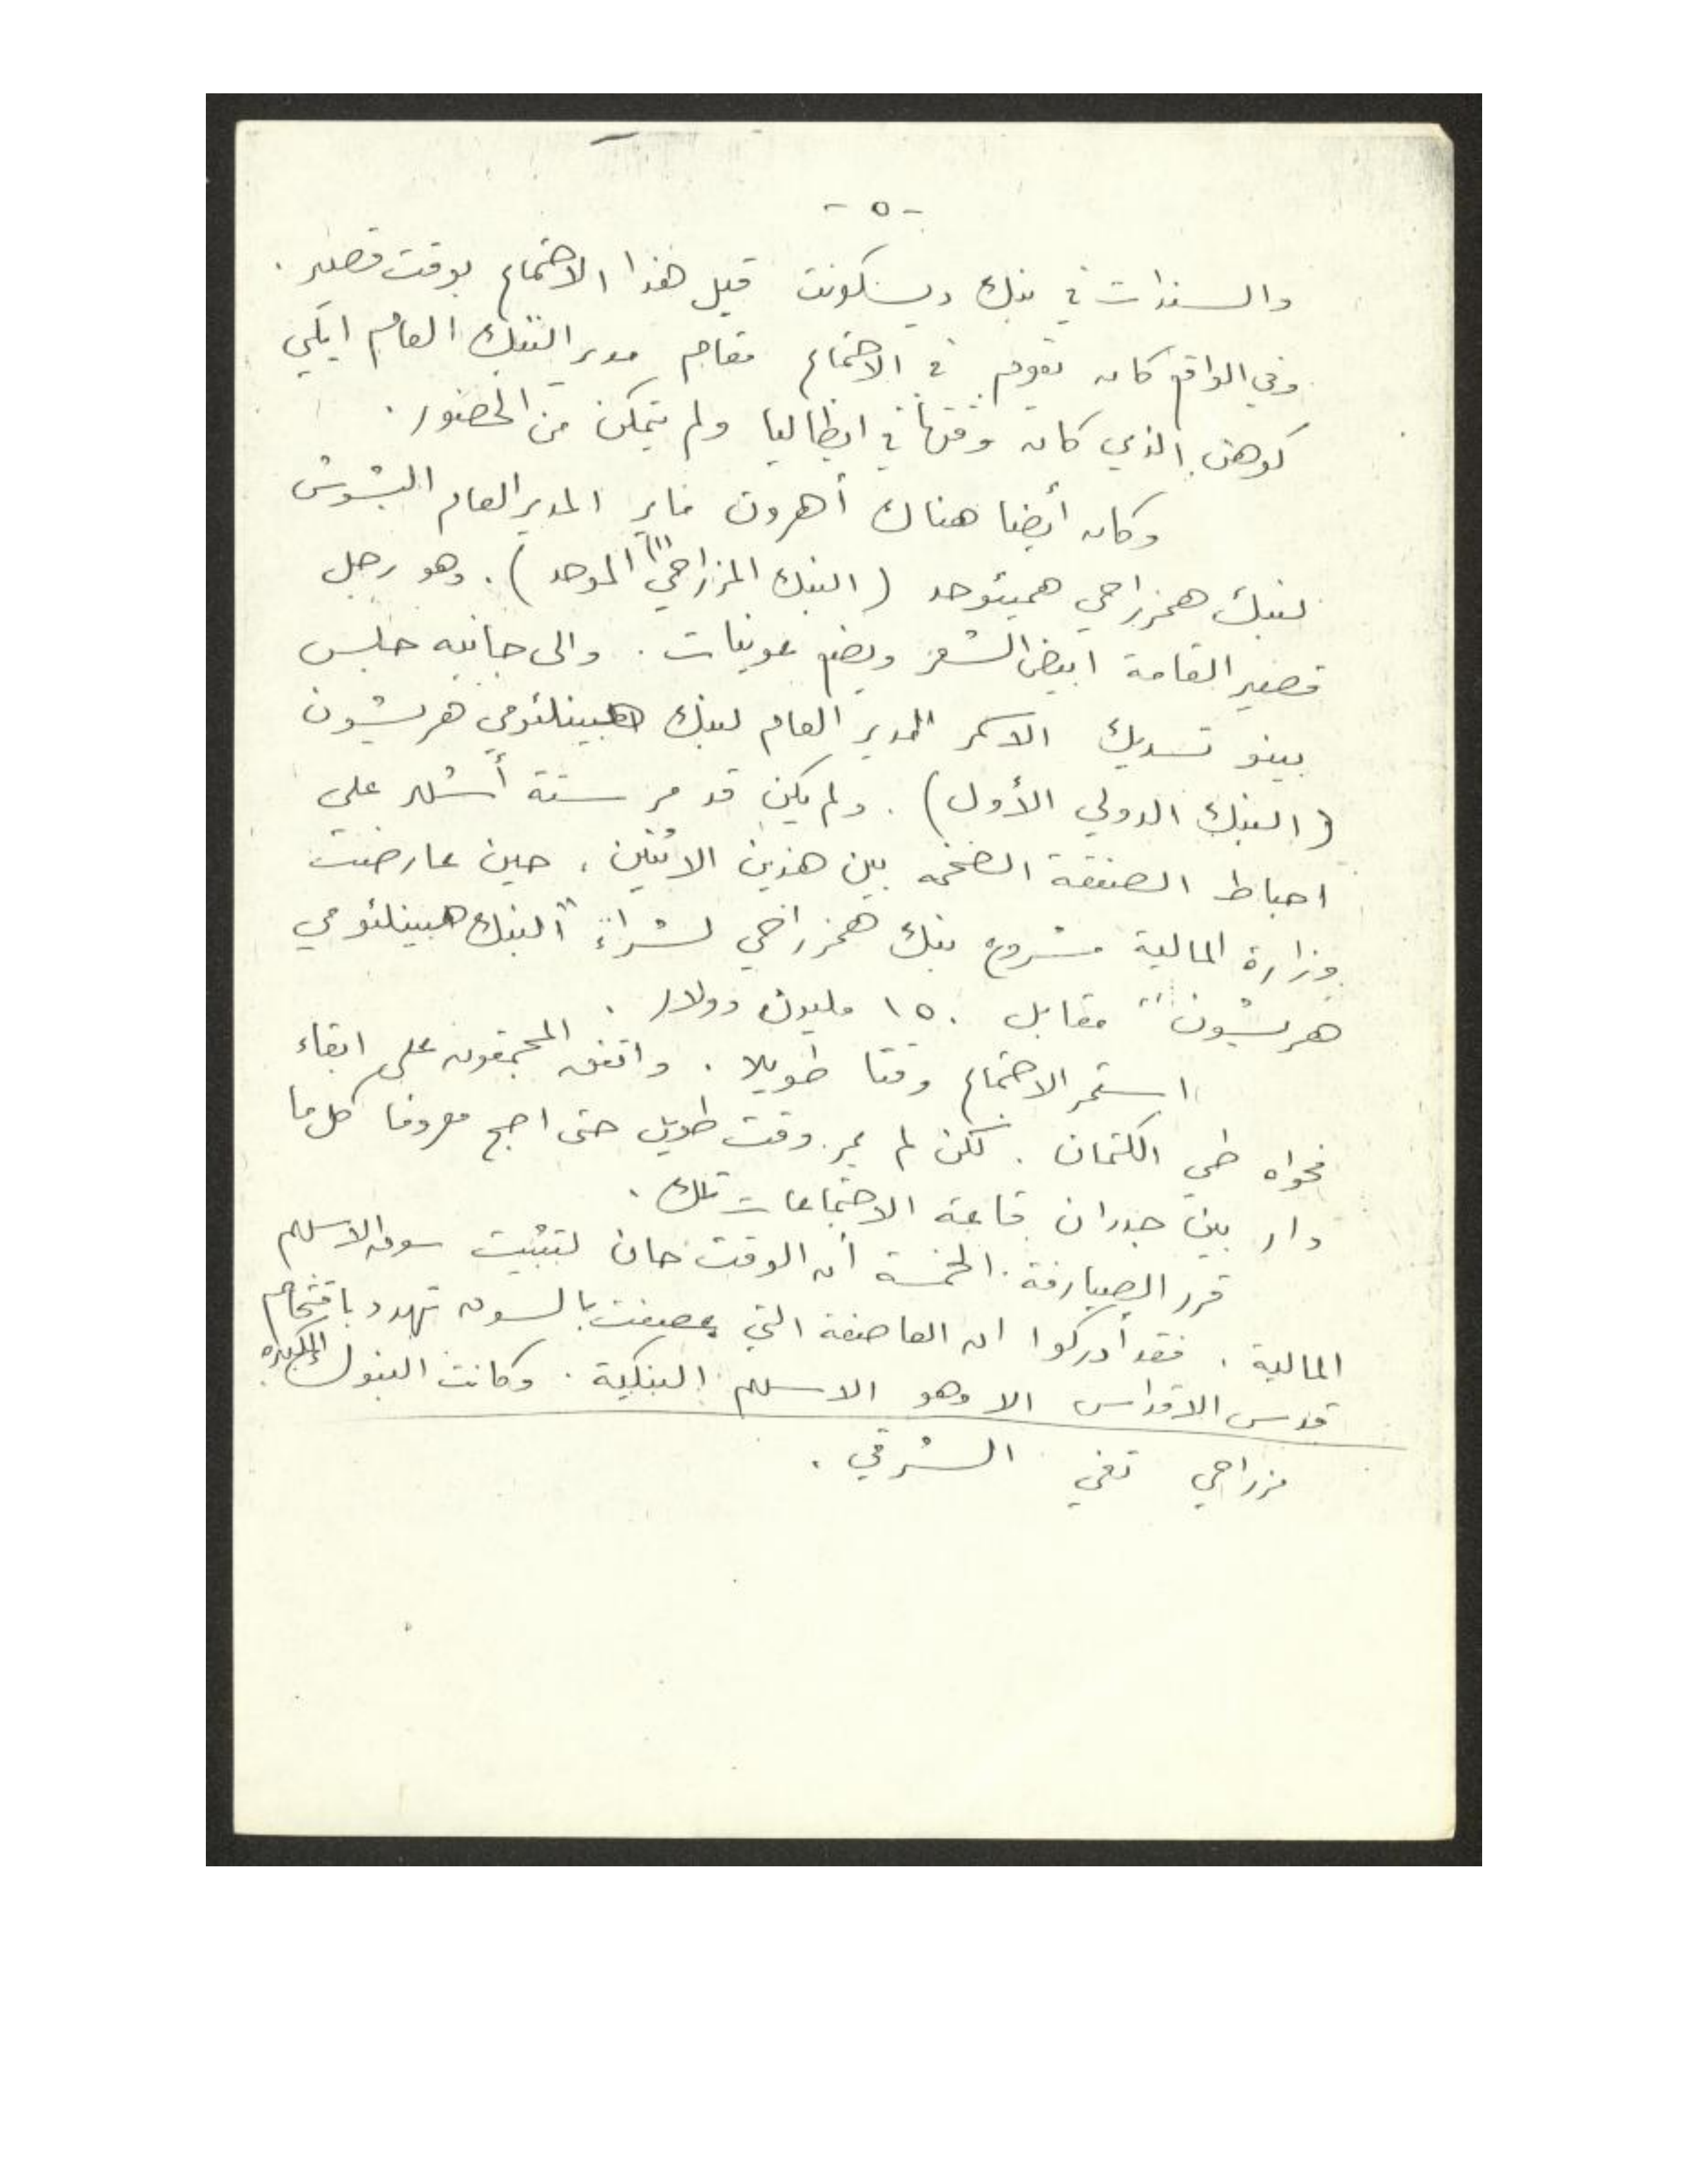 - ٥ -
والسندات في بنك ديسكونت قبل هذا الاجتماع بوقت قصير .
وفي الواقع كان يقوم في الاجتماع مقام مدير البنك العام ايلي
كوهن الذي كان وقتها في ايطاليا ولم يتمكن من الحضور .
وكان أيضا هناك أهرون ماير المدير العام البشوش
لبنك همزراحي همیئوحد ( البنك المزراحي (١) الموحد ) . وهو رجل
قصير القامة ابيض الشعر ويضع عوينات . والى جانبه جلس
بينو تسديك الاسمر المدير العام لبنك هبينلئومي هريشون
( البنك الدولي الأول ) . ولم يكن قد مر ستة أشهر على
احباط الصفقة الضخمه بين هذين الاثنين ، حين عارضت
وزارة المالية مشروع بنك همزراحي لشراء " البنك هبينلئومي
هريشون " مقابل ١٥٠ مليون دولار .
استمر الاجتماع وقتا طويلا . واتفق المجتمعون على ابقاء
فحواه طي الكتمان . لكن لم يمر وقت طويل حتى اصبح معروفا كل ما
دار بين جدران قاعة الاجتماعات تلك .
قرر الصيارفة الخمسة أن الوقت حان لتثبيت سوق الاسهم
المالية . فقد أدركوا ان العاصفة التي عصفت بالسوق تهدد باقتحام
قدس الاقداس الا وهو الاسهم البنكية . وكانت البنوك الكبيرة
مزراحي تعني الشرقي .